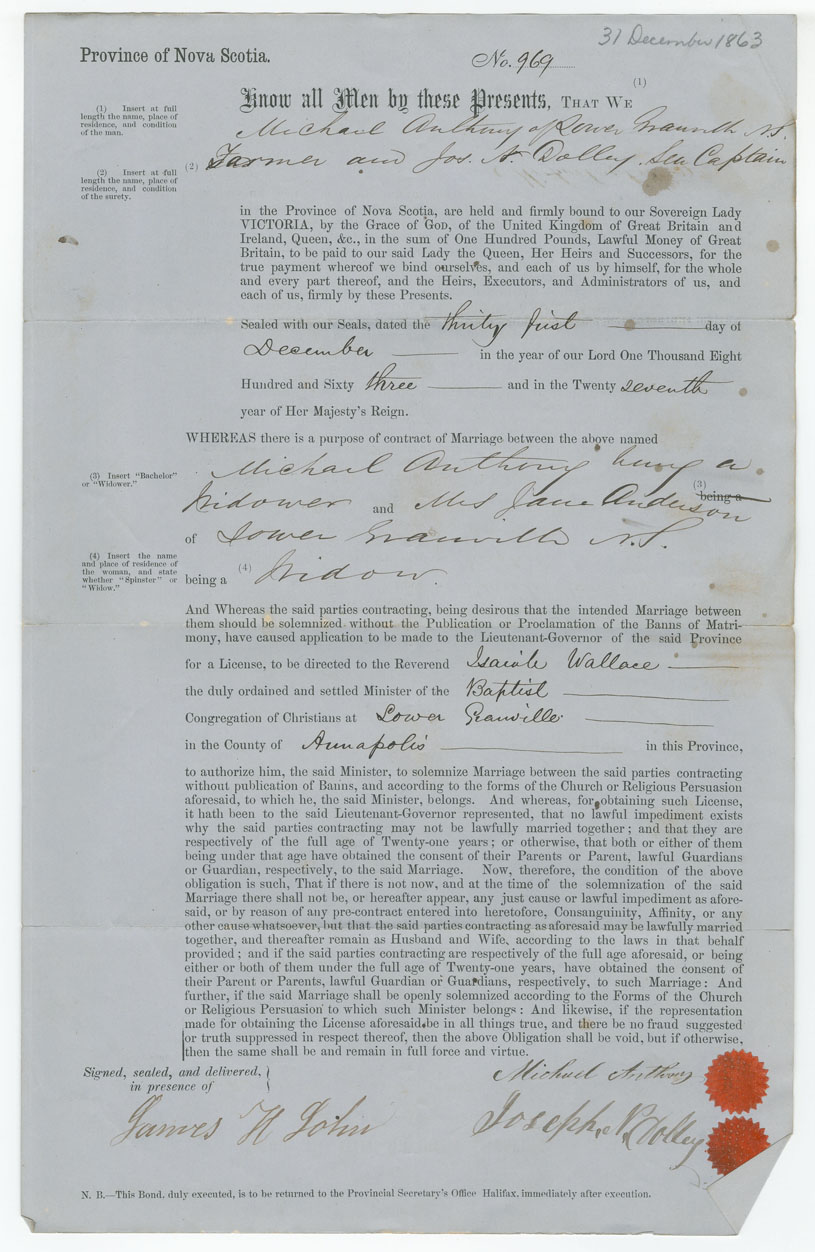 31 December 1863
Province of Nova Scotia.
No. 969
(1)
Know all Men by these Presents, THAT WE
(1) Insert at full
length the name, place of
residence, and condition
of the man.
Michael Anthony of Lower Granville N.S.
(2) Farmer and Jos. N. Dolley Sea Captain
(2) Insert at full
length the name, place of
residence, and condition
of the surety.
in the Province of Nova Scotia, are held and firmly bound to our Sovereign Lady
VICTORIA, by the Grace of GOD, of the United Kingdom of Great Britain and
Ireland, Queen, &c., in the sum of One Hundred Pounds, Lawful Money of Great
Britain, to be paid to our said Lady the Queen, Her Heirs and Successors, for the
true payment whereof we bind ourselves, and each of us by himself, for the whole
and every part thereof, and the Heirs, Executors, and Administrators of us, and
each of us, firmly by these Presents.
Sealed with our Seals, dated the thirty first day of
December in the year of our Lord One Thousand Eight
Hundred and Sixty three and in the Twenty seventh
year of Her Majesty's Reign.
WHEREAS there is a purpose of contract of Marriage between the above named
Michael Anthony being a
(3) Insert "Bachelor"
or "Widower."
(3)
Widower and Mrs Jane Anderson being a
of Lower Granville N.S.
(4) Insert the name
and place of residence of
the woman, and state
whether "Spinster" or
"Widow."
being a (4) Widow.
And Whereas the said parties contracting, being desirous that the intended Marriage between
them should be solemnized without the Publication or Proclamation of the Banns of Matri-
mony, have caused application to be made to the Lieutenant-Governor of the said Province
for a License, to be directed to the Reverend Isaiah Wallace
the duly ordained and settled Minister of the Baptist
Congregation of Christians at Lower Granville
in the County of Annapolis in this Province,
to authorize him, the said Minister, to solemnize Marriage between the said parties contracting
without publication of Banns, and according to the forms of the Church or Religious Persuasion
aforesaid, to which he, the said Minister, belongs. And whereas, for obtaining such License,
it hath been to the said Lieutenant-Governor represented, that no lawful impediment exists
why the said parties contracting may not be lawfully married together; and that they are
respectively of the full age of Twenty-one years; or otherwise, that both or either of them
being under that age have obtained the consent of their Parents or Parent, lawful Guardians
or Guardian, respectively, to the said Marriage. Now, therefore, the condition of the above
obligation is such, That if there is not now, and at the time of the solemnization of the said
Marriage there shall not be, or hereafter appear, any just cause or lawful impediment as afore-
said, or by reason of any pre-contract entered into heretofore, Consanguinity, Affinity, or any
other cause whatsoever, but that the said parties contracting as aforesaid may be lawfully married
together, and thereafter remain as Husband and Wife, according to the laws in that behalf
provided; and if the said parties contracting are respectively of the full age aforesaid, or being
either or both of them under the full age of Twenty-one years, have obtained the consent of
their Parent or Parents, lawful Guardian or Guardians, respectively, to such Marriage: And
further, if the said Marriage shall be openly solemnized according to the Forms of the Church
or Religious Persuasion to which such Minister belongs: And likewise, if the representation
made for obtaining the License aforesaid be in all things true, and there be no fraud suggested
or truth suppressed in respect thereof, then the above Obligation shall be void, but if otherwise,
then the same shall be and remain in full force and virtue.
Signed, sealed, and delivered,
in presence of
Michael Anthony
James H John
Joseph N Dolley
N. B.—This Bond, duly executed, is to be returned to the Provincial Secretary's Office Halifax, immediately after execution.